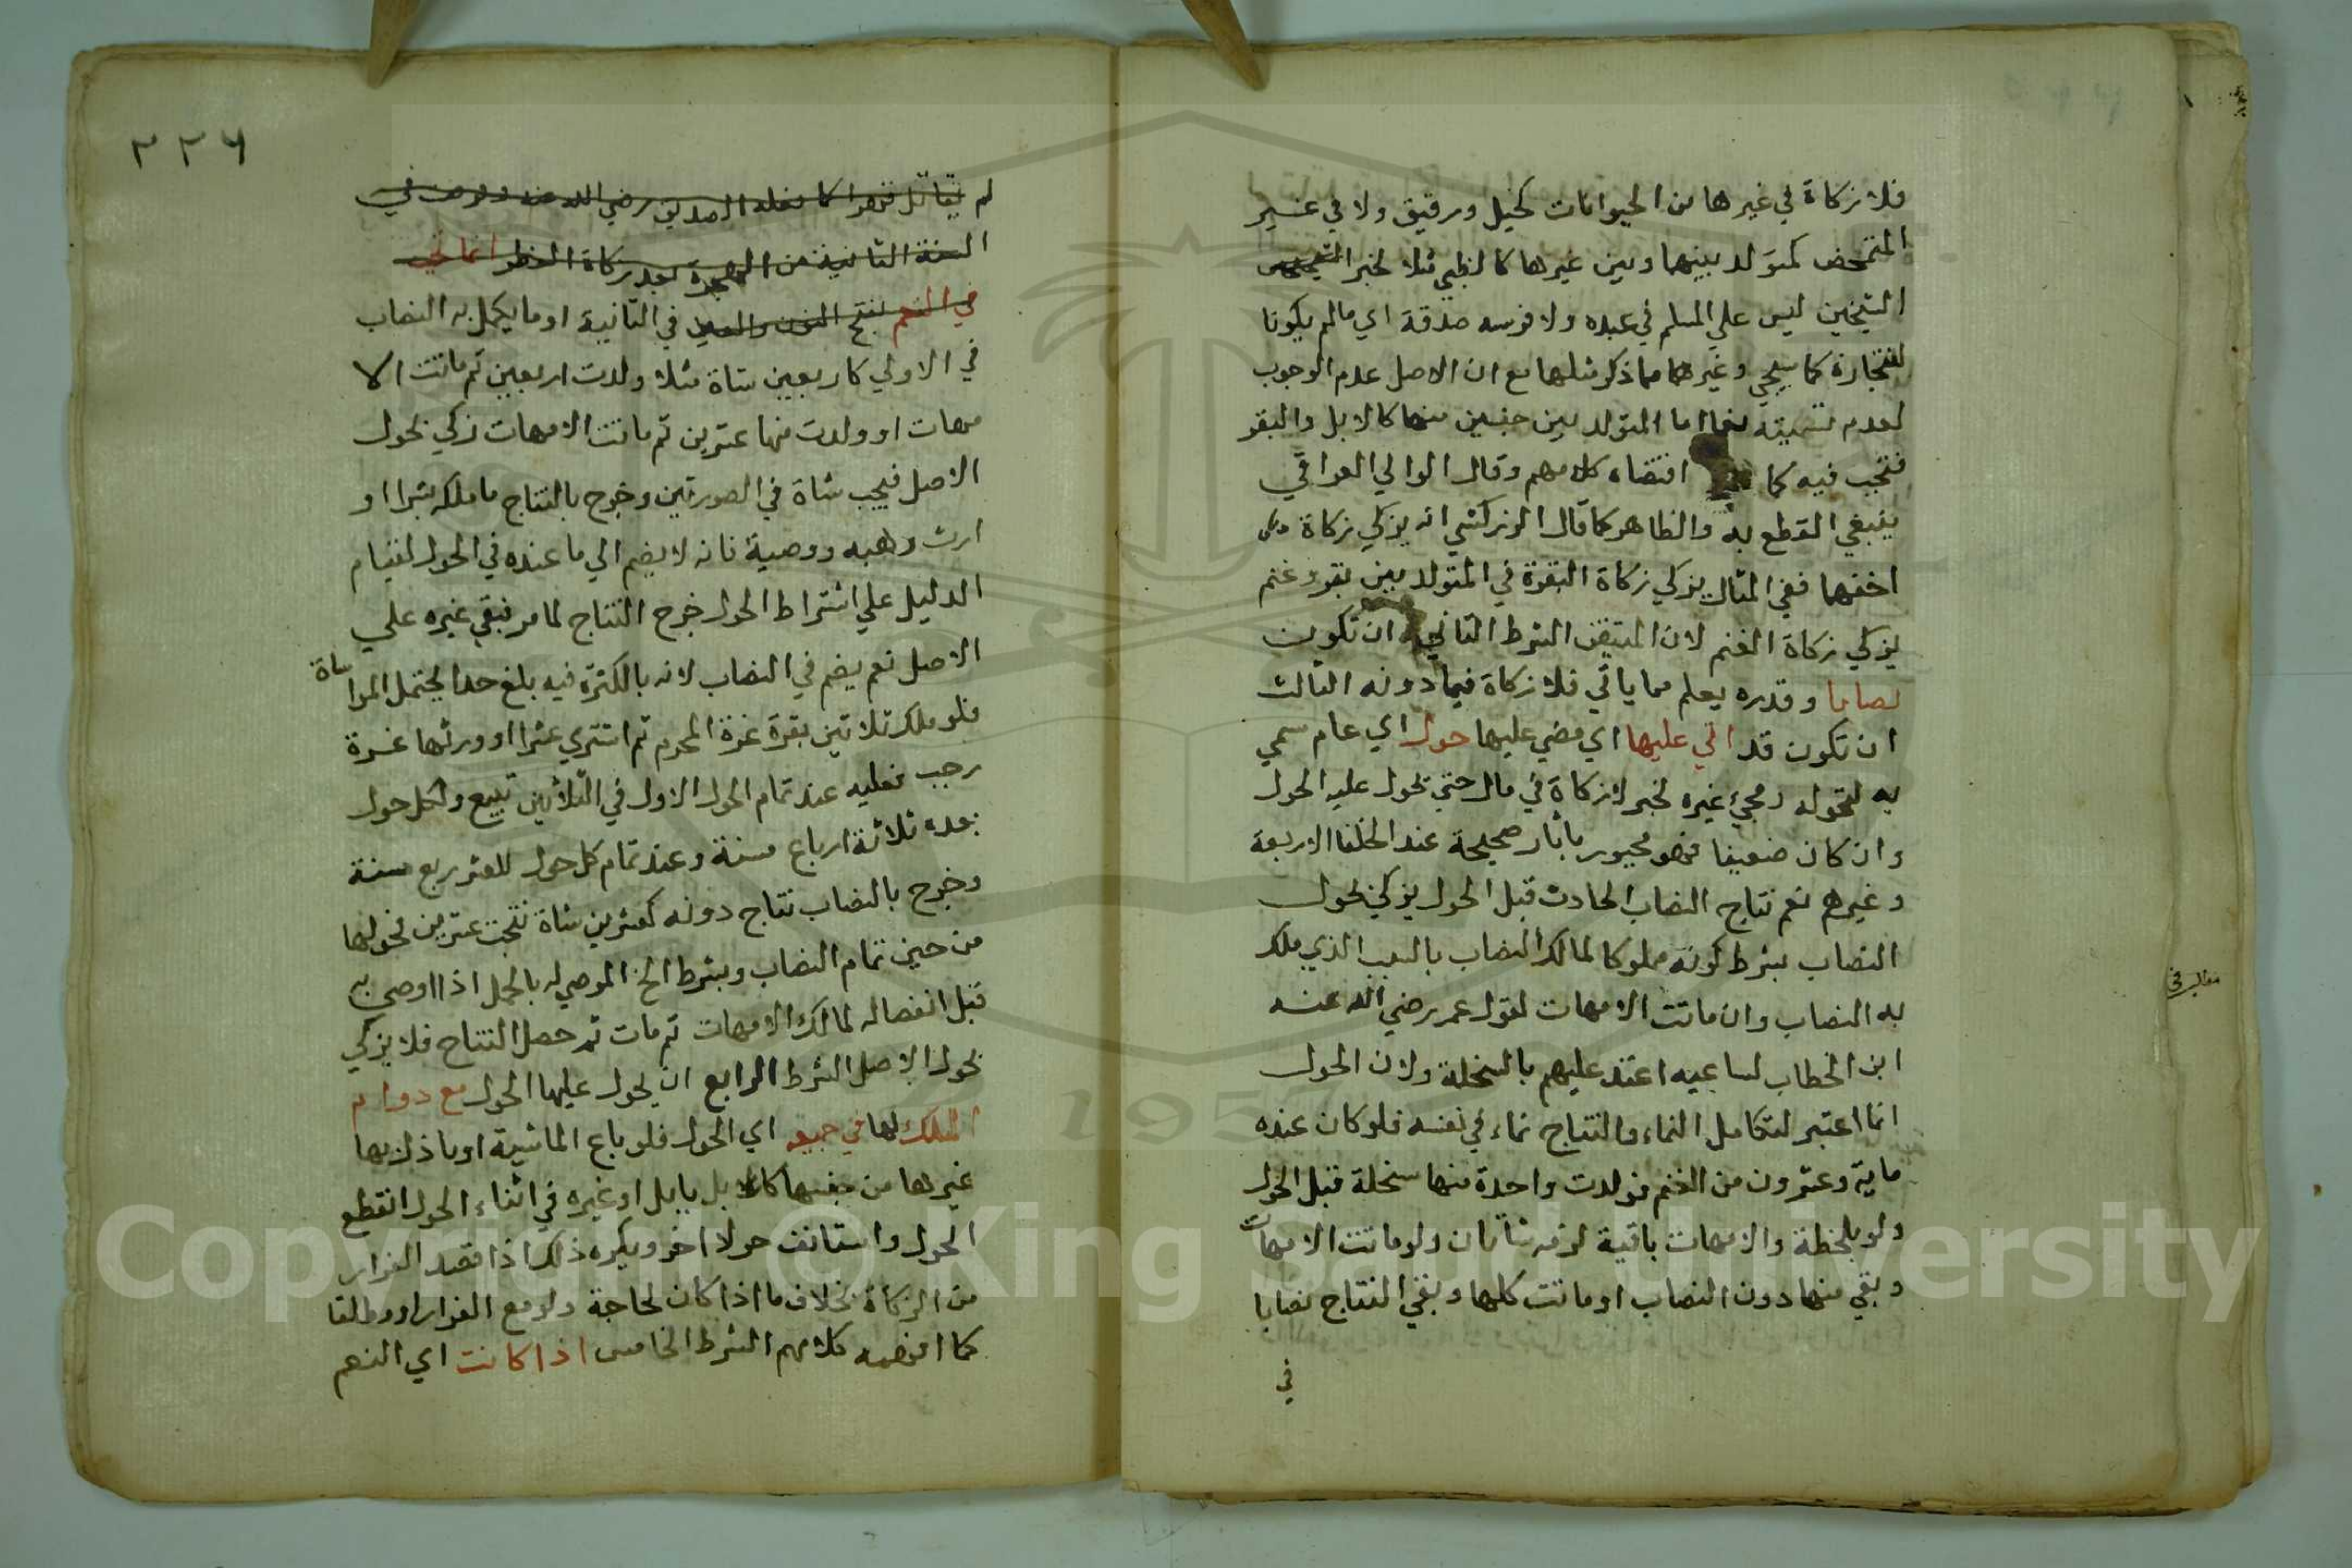 فلا زكاة في غيرها من الحيوانات كخيل ورقيق ولا في غير
المتمحض كمتولد بينها وبين غيرها كالظبي مثلا لخبر
الشيخين ليس علي المسلم في عبده ولا فرسه صدقة اي ما لم يكونا
للتجارة كما سيجي وغيرهما مما ذكر مثلها مع ان الاصل عدم الوجوب
لعدم تسميته نعما اما المتولد بين جنسين منها كالابل والبقر
فتجب فيه كما اقتضاه كلامهم وقال الوالي العراقي
ينبغي القطع به والظاهر كما قال الزركشي انه يزكي زكاة
اخفهما ففي المثال يزكي زكاة البقرة في المتولد بين بقر وغنم
يزكي زكاة الغنم لان المتيقن الشرط الثاني ان تكون
نصابا وقدره يعلم مما ياتي فلا زكاة فيما دونه الثالث
ان تكون قد اتي عليها اي مضي عليها حول اي عام سمي
به لتحوله ومجئ غيره لخبر لا زكاة في مال حتي يحول عليه الحول
وان كان ضعيفا فهو مجبور باثار صحيحة عند الخلفا الاربعة
وغيرهم نعم نتاج النصاب الحادث قبل الحول يزكي لحول
النصاب بشرط كونه مملوكا لمالك النصاب بالسبب الذي ملك
به النصاب وان ماتت الامهات لقول عمر رضي الله عنه
ابن الخطاب لساعيه اعتد عليهم بالسخلة ولان الحول
انما اعتبر لتكامل النماء والنتاج نماء في نفسه فلو كان عنده
ماية وعشرون من الغنم فولدت واحدة منها سخلة قبل الحول
ولو بلحظة والامهات باقية لزمه شاتان ولو ماتت الامهات
وبقي منها دون النصاب او ماتت كلها وبقي النتاج نصابا
في
٢٢٦
لم يقاتل فهوا كما فعله الصديق رضي الله عنه وفرضت في
السنة الثانية من الهجرة بعد زكاة الفطر انما تجب
في النعم بفتح النون والعين في الثانية او ما يكمل به النصاب
في الاولي كاربعين شاة مثلا ولدت اربعين ثم ماتت الا
مهات او ولدت منها عشرين ثم ماتت الامهات زكي لحول
الاصل فيجب شاة في الصورتين وخرج بالنتاج ما ملكه بشرا او
ارث وهبه ووصية فانه لا يضم الي ما عنده في الحول لقيام
الدليل علي اشتراط الحول خرج النتاج لما مر فبقي غيره علي
الاصل نعم يضم في النصاب لانه بالكثرة فيه بلغ حدا يحتمل المواساة
فلو ملك ثلاثين بقرة غرة المحرم ثم اشتري عشرا او ورثها غرة
رجب فعليه عند تمام الحول الاول في الثلاثين تبيع ولكل حول
بعده ثلاثة ارباع مسنة وعند تمام كل حول للعشر ربع مسنة
وخرج بالنصاب نتاج دونه كعشرين شاة نتجت عشرين فحولها
من حين تمام النصاب وبشرط الخ الموصي له بالحمل اذا اوصي به
قبل انفصاله لمالك الامهات ثم مات ثم حصل النتاج فلا يزكي
بحول الاصل الشرط الرابع ان يحول عليها الحول مع دوام
الملك لها في جميعه اي الحول فلو باع الماشية او بادلها
غيرها من جنسها كالابل بابل او غيره في اثناء الحول انقطع
الحول واستانف حولا اخر ويكره ذلك اذا قصد الفرار
من الزكاة بخلاف ما اذا كان لحاجة ولو مع الفرار او مطلقا
كما كلامهم الشرط الخامس اذا كانت اي النعم
Copyright © King Saud University
1957